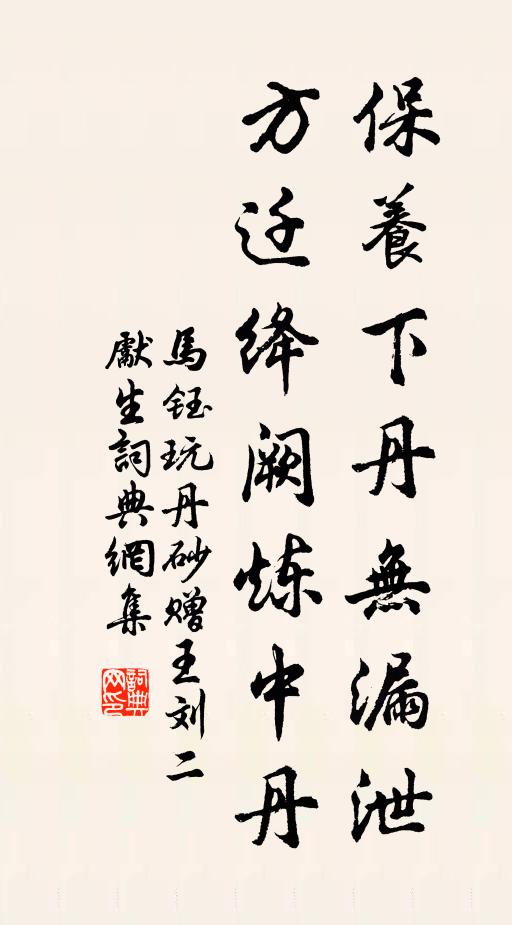 保養下丹無漏泄
方迁绛阙炼中丹
馬鈺玩丹砂赠王刘二
獻生詞典網集
詞典网印